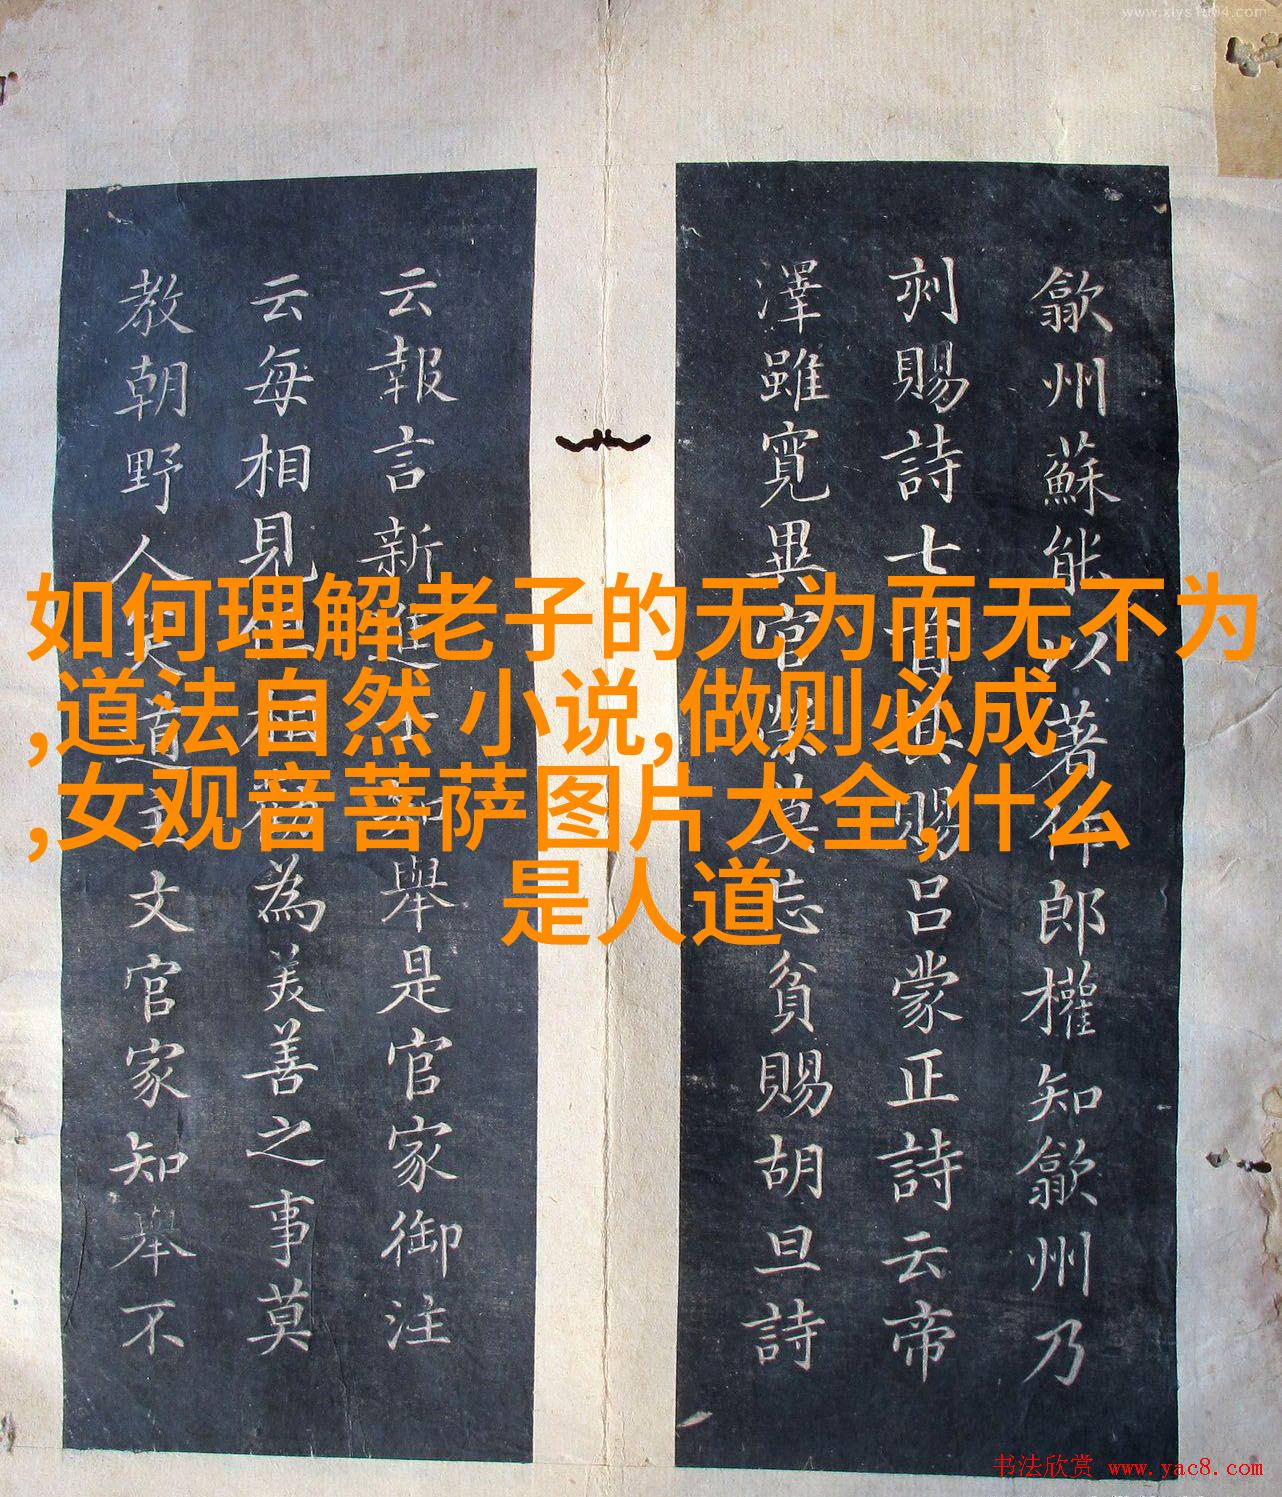 www.xiys1004.com
如何理解老子的无为而无不为
,道法自然 小说,做则必成
,女观音菩萨图片大全,什么
是人道
歙州蘇能以著作郎權知歙州乃
刺賜詩七首其賜呂蒙正詩云帝
澤雖寬異官榮莫忘貧賜胡旦詩
云報言新進士知舉是官家御注
云每相見但相勸為美善之事莫
教朝野人笑道主文官家知舉不
书法欣赏 www.yac8.com